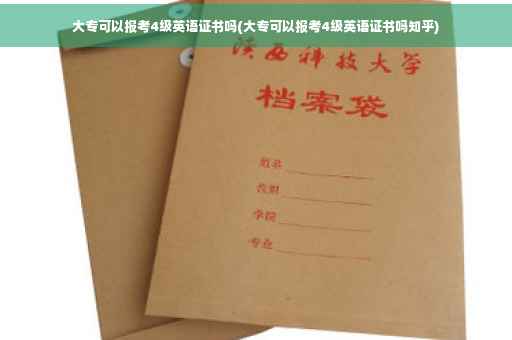 大专可以报考4级英语证书吗(大专可以报考4级英语证书吗知乎)
陕西科技大学
档案袋
姓名
学院
专业